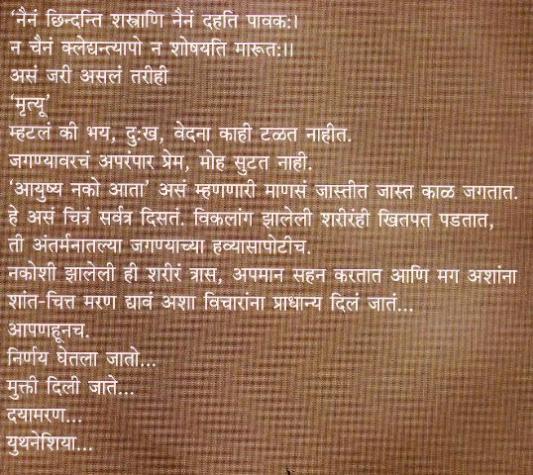 ‘नैनं छिन्दन्ति शस्त्राणि नैनं दहति पावक:।
न चैनं क्लेद्यन्त्यापो न शोषयति मारूत:।।
असं जरी असलं तरीही
‘मृत्यू’
म्हटलं की भय, दु:ख, वेदना काही टळत नाहीत.
जगण्यावरचं अपरंपार प्रेम, मोह सुटत नाही.
‘आयुष्य नको आता’ असं म्हणणारी माणसं जास्तीत जास्त काळ जगतात.
हे असं चित्रं सर्वत्र दिसतं. विकलांग झालेली शरीरंही खितपत पडतात,
ती अंतर्मनातल्या जगण्याच्या हव्यासापोटीच.
नकोशी झालेली ही शरीरं त्रास, अपमान सहन करतात आणि मग अशांना
शांत-चित्त मरण द्यावं अशा विचारांना प्राधान्य दिलं जातं...
आपणहूनच.
निर्णय घेतला जातो...
मुक्ती दिली जाते...
दयामरण...
युथनेशिया...